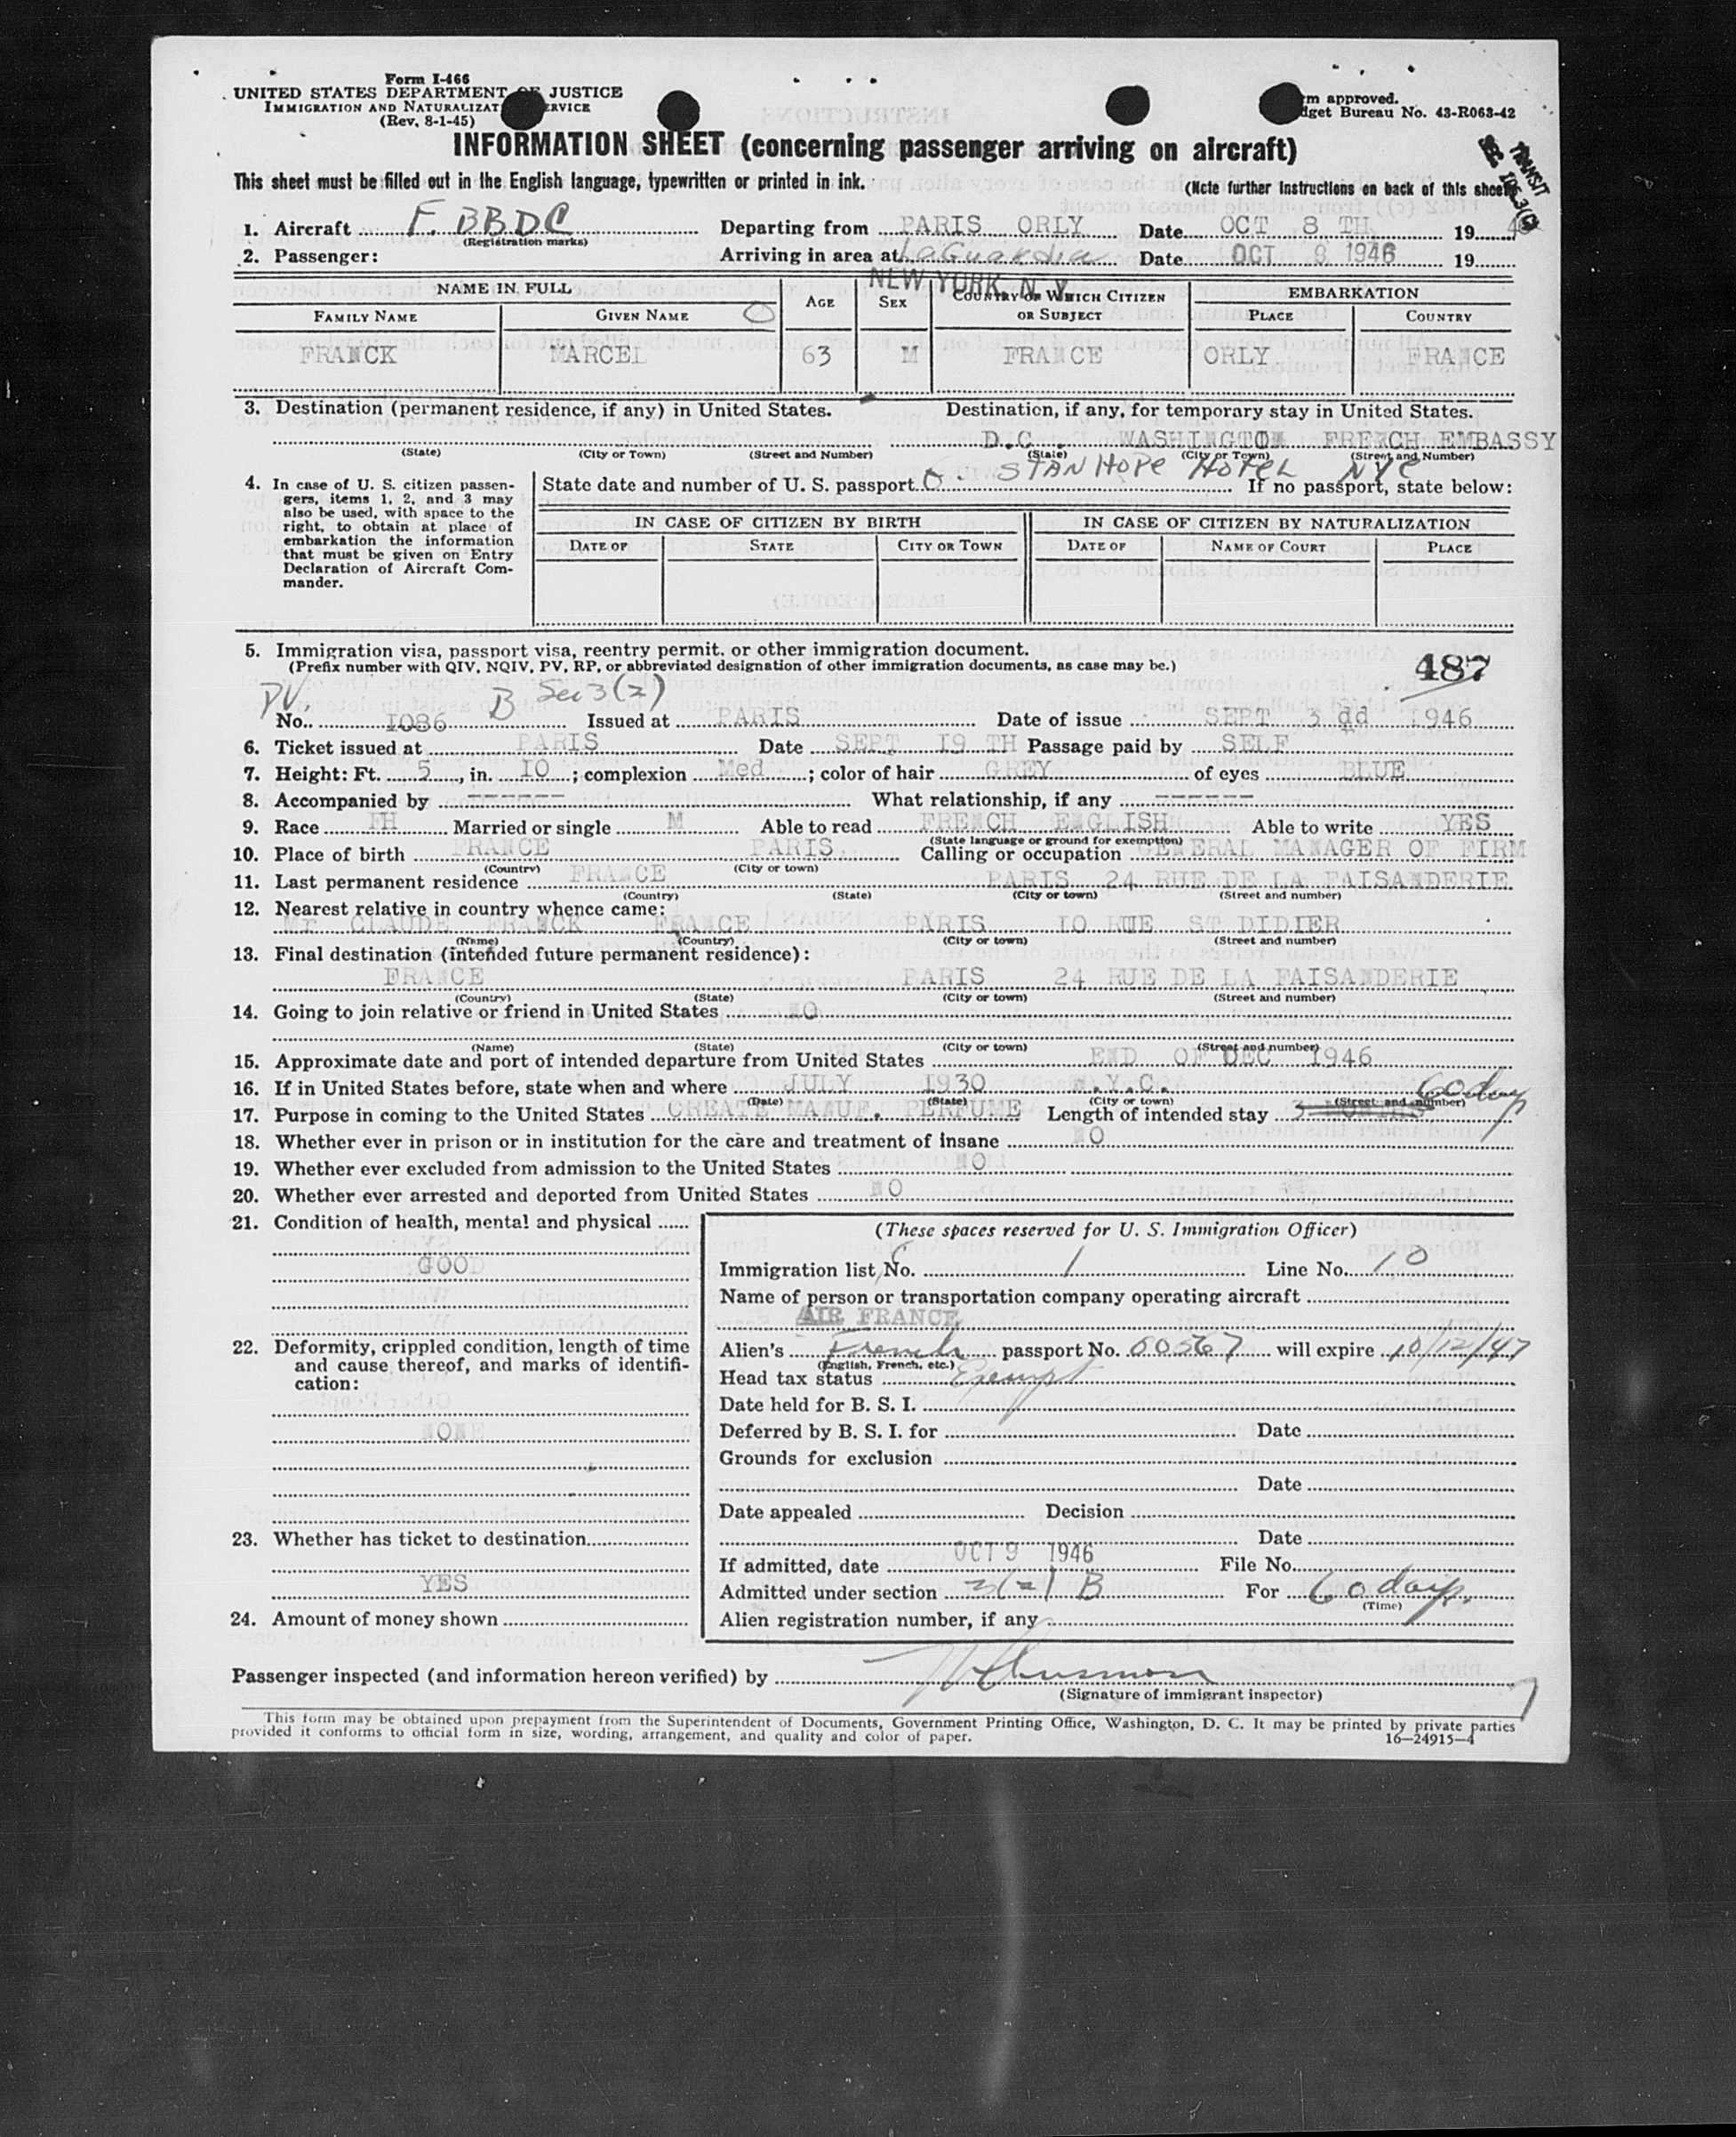 Form I-466
UNITED STATES DEPARTMENT OF JUSTICE
IMMIGRATION AND NATURALIZAT ERVICE
(Rev. 8-1-45)
m approved.
dget Bureau No. 43-R063-42
INFORMATION SHEET (concerning passenger arriving on aircraft)
This sheet must be filled out in the English language, typewritten or printed in ink.
(Note further instructions on back of this sheet)
TRANSIT
1. Aircraft F. BBDC Departing from PARIS ORLY Date OCT 8 TH 1946
(Registration marks)
2. Passenger: Arriving in area at LaGuardia Date OCT 8 1946 19
NEW YORK, N.Y.
NAME IN FULL AGE SEX COUNTRY OF WHICH CITIZEN OR SUBJECT EMBARKATION
FAMILY NAME GIVEN NAME PLACE COUNTRY
FRANCK MARCEL 63 M FRANCE ORLY FRANCE
3. Destination (permanent residence, if any) in United States. Destination, if any, for temporary stay in United States.
D.C. WASHINGTON FRENCH EMBASSY
(State) (City or Town) (Street and Number) (State) (City or Town) (Street and Number)
STANHOPE HOTEL NYC
4. In case of U. S. citizen passengers, items 1, 2, and 3 may also be used, with space to the right, to obtain at place of embarkation the information that must be given on Entry Declaration of Aircraft Commander.
State date and number of U. S. passport If no passport, state below:
IN CASE OF CITIZEN BY BIRTH IN CASE OF CITIZEN BY NATURALIZATION
DATE OF STATE CITY OR TOWN DATE OF NAME OF COURT PLACE
5. Immigration visa, passport visa, reentry permit, or other immigration document.
(Prefix number with QIV, NQIV, PV, RP, or abbreviated designation of other immigration documents, as case may be.)
487
PV. B Sec 3(2)
No. 1086 Issued at PARIS Date of issue SEPT 3 dd 1946
6. Ticket issued at PARIS Date SEPT 19 TH Passage paid by SELF
7. Height: Ft. 5, in. 10; complexion Med; color of hair GREY of eyes BLUE
8. Accompanied by ------ What relationship, if any ------
9. Race FH Married or single M Able to read FRENCH ENGLISH Able to write YES
(State language or ground for exemption)
10. Place of birth FRANCE PARIS Calling or occupation GENERAL MANAGER OF FIRM
(Country) (City or town)
11. Last permanent residence FRANCE PARIS 24 RUE DE LA FAISANDERIE
(Country) (State) (City or town) (Street and number)
12. Nearest relative in country whence came:
Mr CLAUDE FRANCK FRANCE PARIS 10 RUE ST DIDIER
(Name) (Country) (City or town) (Street and number)
13. Final destination (intended future permanent residence):
FRANCE PARIS 24 RUE DE LA FAISANDERIE
(Country) (State) (City or town) (Street and number)
14. Going to join relative or friend in United States NO
(Name) (State) (City or town) (Street and number)
15. Approximate date and port of intended departure from United States END OF DEC 1946
16. If in United States before, state when and where JULY 1930 N.Y.C.
(Date) (State) (City or town) (Street and number)
60 days
17. Purpose in coming to the United States CREATE MANUF. PERFUME Length of intended stay 3 MONTHS
18. Whether ever in prison or in institution for the care and treatment of insane NO
19. Whether ever excluded from admission to the United States NO
20. Whether ever arrested and deported from United States NO
21. Condition of health, mental and physical
GOOD
22. Deformity, crippled condition, length of time and cause thereof, and marks of identification:
NONE
23. Whether has ticket to destination
YES
24. Amount of money shown
(These spaces reserved for U. S. Immigration Officer)
Immigration list No. 1 Line No. 10
Name of person or transportation company operating aircraft
AIR FRANCE
Alien's French passport No. 00567 will expire 10/12/47
(English, French, etc.)
Head tax status Exempt
Date held for B. S. I.
Deferred by B. S. I. for Date
Grounds for exclusion
Date
Date appealed Decision
Date
If admitted, date OCT 9 1946 File No.
Admitted under section 3(2) B For 60 days.
(Time)
Alien registration number, if any
Passenger inspected (and information hereon verified) by
(Signature of immigrant inspector)
This form may be obtained upon prepayment from the Superintendent of Documents, Government Printing Office, Washington, D. C. It may be printed by private parties
provided it conforms to official form in size, wording, arrangement, and quality and color of paper.
16—24915-4